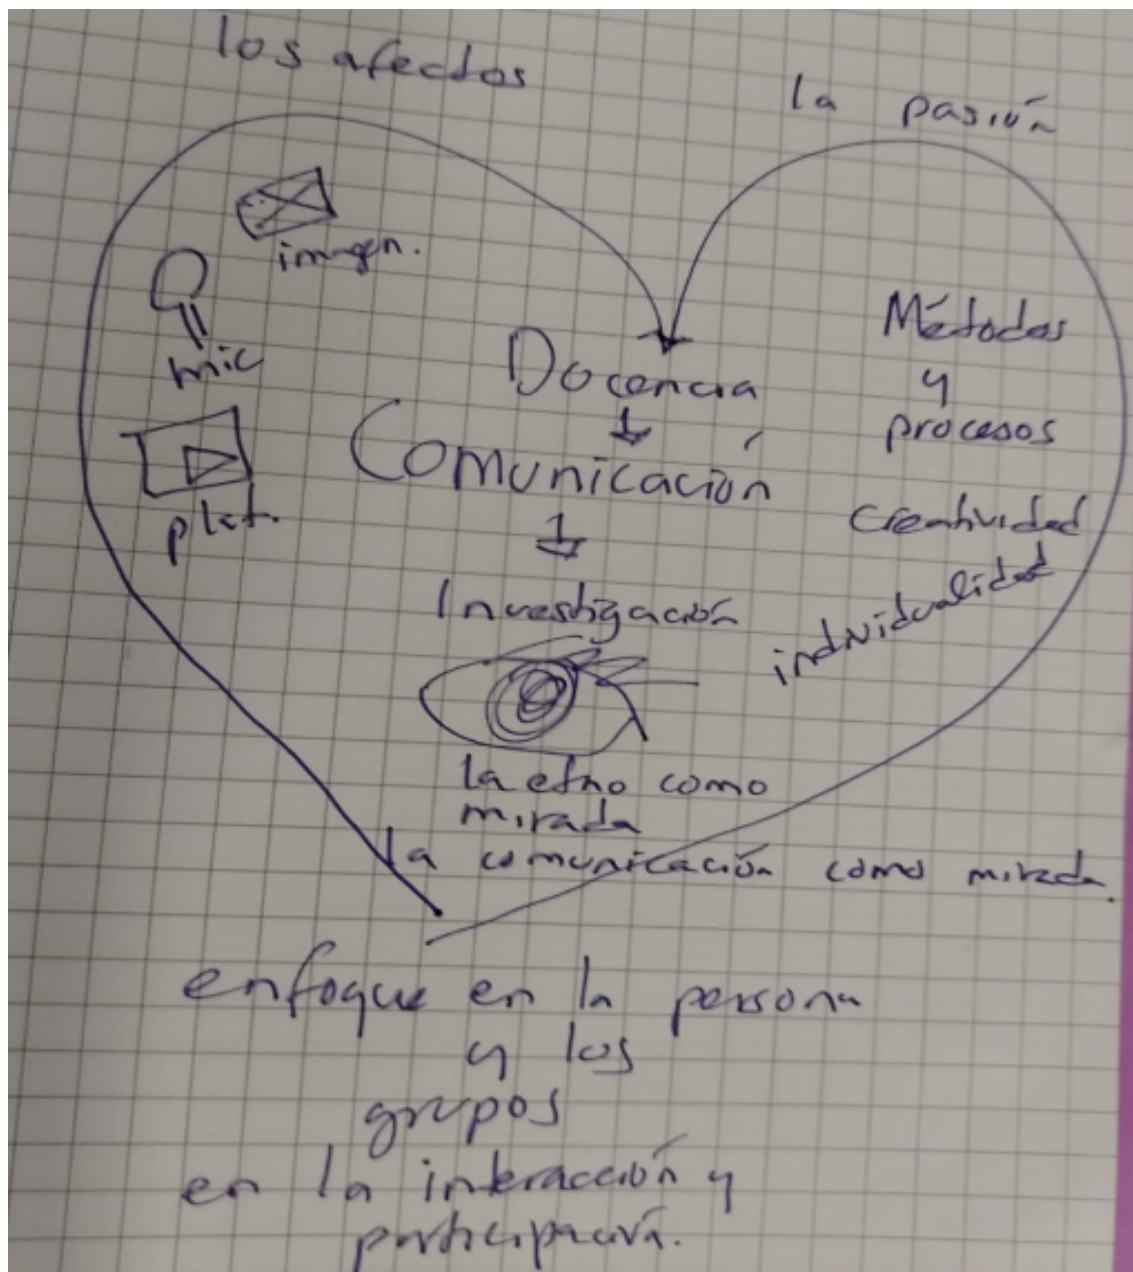 los afectos
la pasión
imagen.
mic
plat.
Docencia
Comunicación
Investigación
Métodos
y
procesos
creatividad
individualidad
la etno como
mirada
la comunicación como mirada.
enfoque en la persona
y los
grupos
en la interacción y
participación.